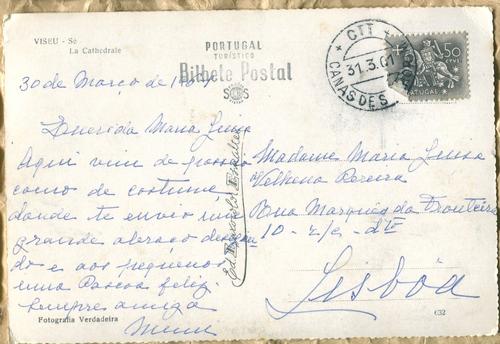 VISEU - Sé
La Cathédrale
PORTUGAL
TURÍSTICO
Bilhete Postal
CTT
31.3.61
CANAS DE S.
50
PORTUGAL
30 de Março de
Querida Maria Luisa
Aqui vim de passeio
como de costume
donde te envio um
grande abraço desejan
do e aos pequenos
uma Pascoa feliz.
Sempre amiga
Mimi
Madame Maria Luisa
Velhena Pereira
Rua Marquês da Fronteira
10 - r/c - dto
Lisbôa
Fotografia Verdadeira
632